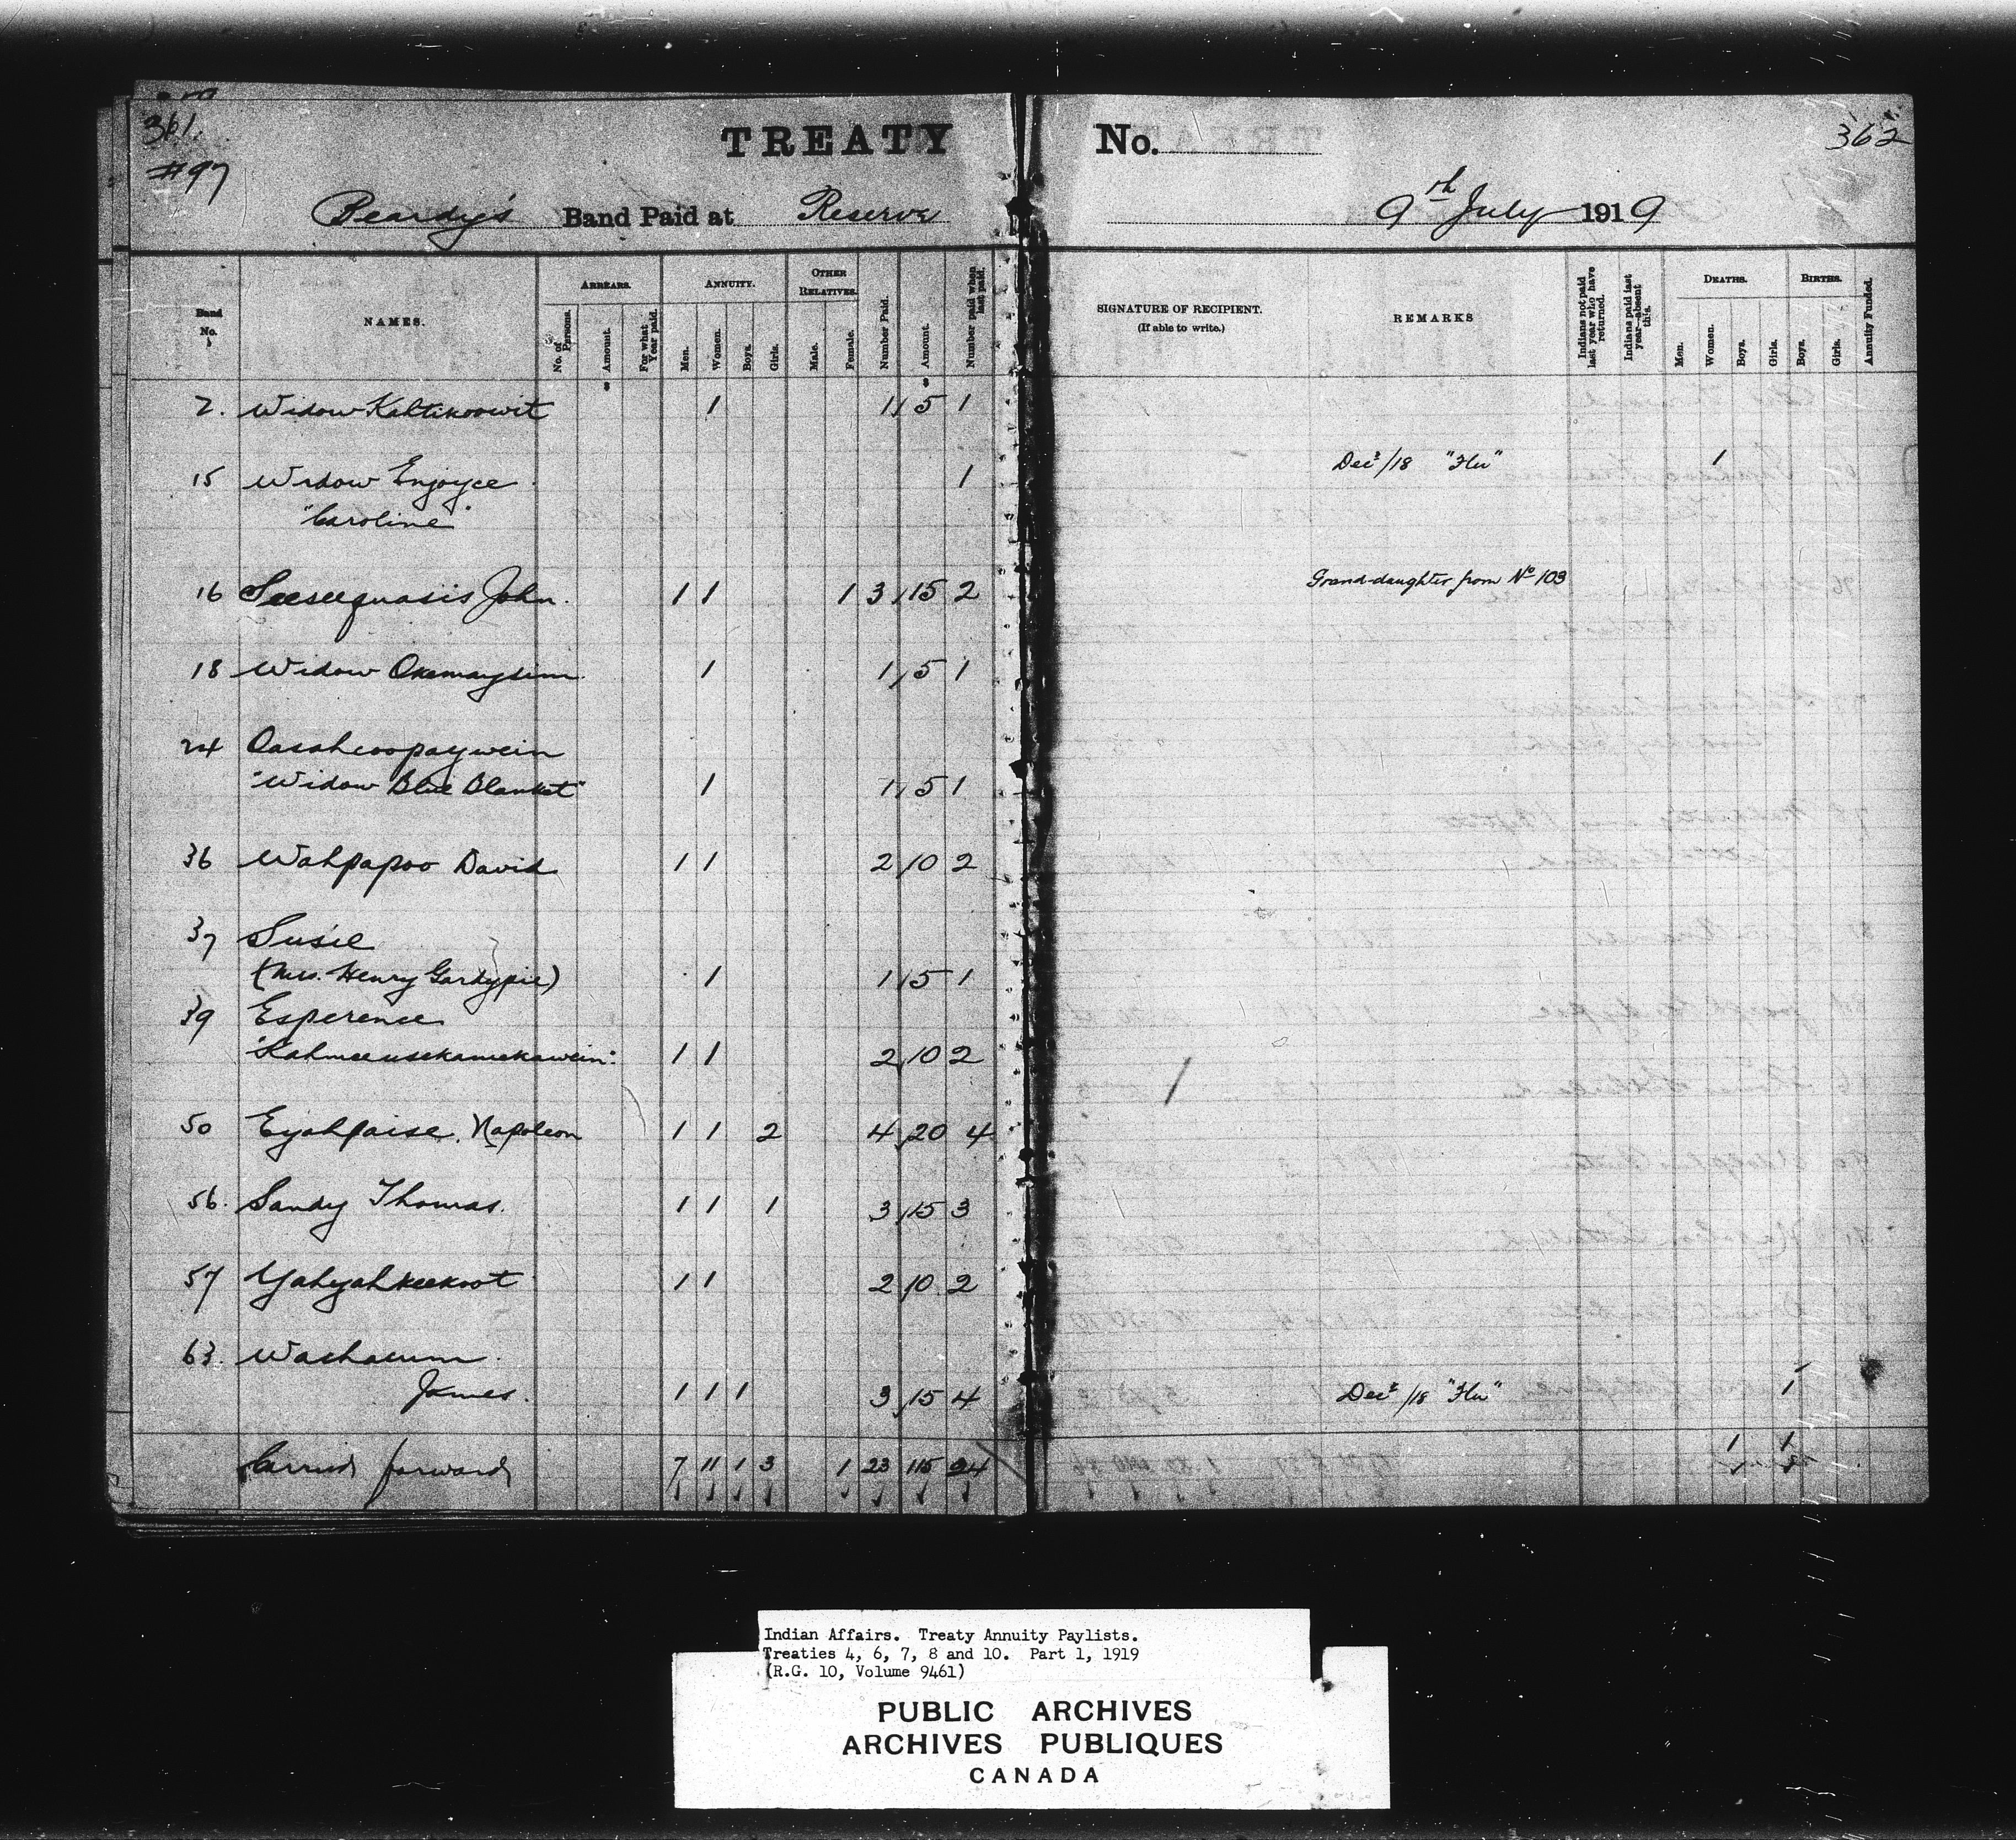 361.
#97
TREATY No. 362
Beardy's Band Paid at Reserve 9th July 1919
Band No. NAMES. ARREARS. No. of Persons. $ Amount. For what Year paid. ANNUITY. Men. Women. Boys. Girls. OTHER RELATIVES. Male. Female. Number Paid. $ Amount. Number paid when last paid. SIGNATURE OF RECIPIENT. (If able to write.) REMARKS Indians not paid last year who have returned. Indians paid last year—absent this. DEATHS. Men. Women. Boys. Girls. BIRTHS. Boys. Girls. Annuity Funded.
2. Widow Kahtikoowit 1 1 5 1
15 Widow Enjoyce 1 Decr/18 "Flu" 1
"Caroline"
16 Seeseequasis John. 1 1 1 3 15 2 Grand-daughter from No 103
18 Widow Okemaysim 1 1 5 1
24 Oasahcoopaywein
"Widow Blue Blanket" 1 1 5 1
36 Wahpapoo David 1 1 2 10 2
37 Susie
(Mrs. Henry Gardypie) 1 1 5 1
39 Esperence
"Kahmeeusekamekawein" 1 1 2 10 2
50 Eyahpaise, Napoleon 1 1 2 4 20 4
56. Sandy Thomas. 1 1 1 3 15 3
57 Yahyahkeekoot 1 1 2 10 2
63. Wachacum
James. 1 1 1 3 15 4 Decr/18 "Flu" 1
Carried forward 7 11 1 3 1 23 115 24 1 1
Indian Affairs. Treaty Annuity Paylists.
Treaties 4, 6, 7, 8 and 10. Part 1, 1919
(R.G. 10, Volume 9461)
PUBLIC ARCHIVES
ARCHIVES PUBLIQUES
CANADA